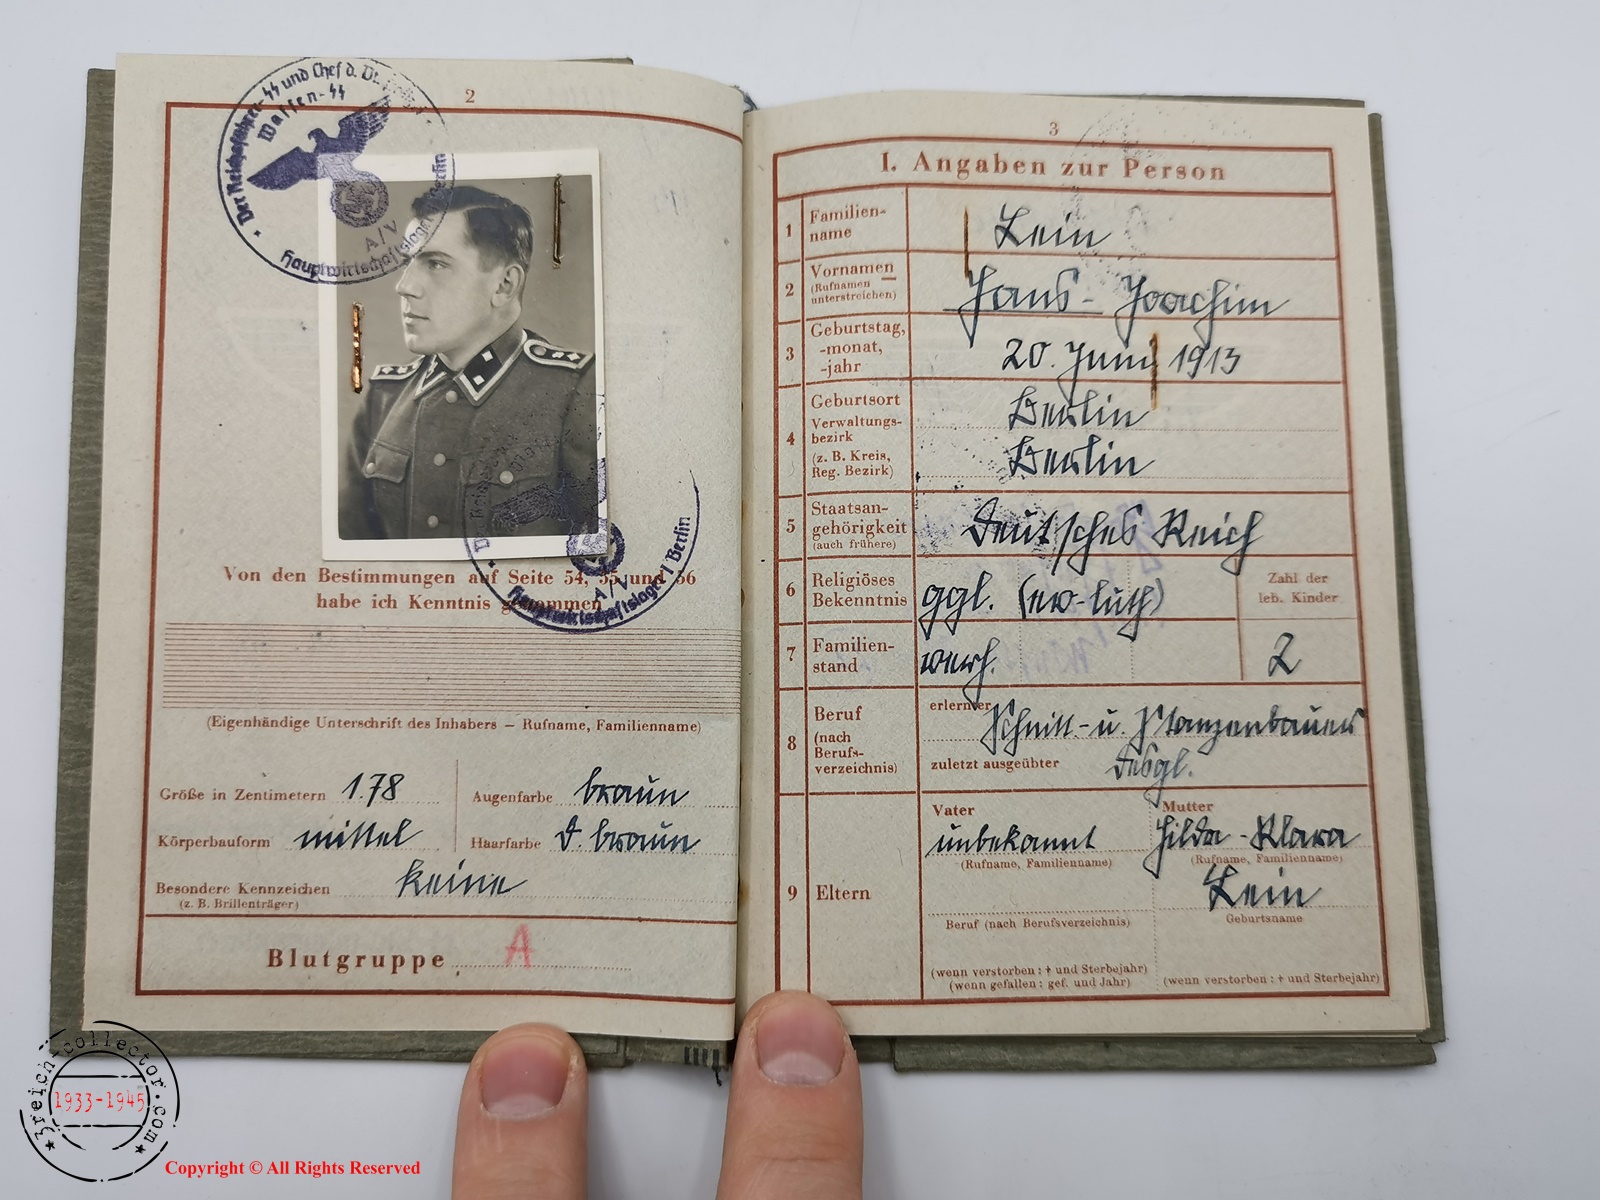 Der Reichsführer-SS und Chef d.
Waffen-SS
A/V
Hauptwirtschaftslager I Berlin
2
Von den Bestimmungen auf Seite 54, 55 und 56
habe ich Kenntnis genommen
A/V
Hauptwirtschaftslager I Berlin
(Eigenhändige Unterschrift des Inhabers – Rufname, Familienname)
Größe in Zentimetern 1.78 Augenfarbe braun
Körperbauform mittel Haarfarbe d. braun
Besondere Kennzeichen keine
(z. B. Brillenträger)
Blutgruppe A
3
I. Angaben zur Person
1 Familien-
name Lein
2 Vornamen
(Rufnamen
unterstreichen) Hans-Joachim
3 Geburtstag,
-monat,
-jahr 20. Juni 1913
4 Geburtsort Berlin
Verwaltungs-
bezirk
(z. B. Kreis,
Reg. Bezirk) Berlin
5 Staatsan-
gehörigkeit
(auch frühere) Deutsches Reich
6 Religiöses
Bekenntnis ggl. (ev-luth)
Zahl der
leb. Kinder
7 Familien-
stand verh. 2
8 Beruf
(nach
Berufs-
verzeichnis)
erlernter Schnitt- u. Stanzenbauer
zuletzt ausgeübter desgl.
9 Eltern
Vater
unbekannt
(Rufname, Familienname)
Beruf (nach Berufsverzeichnis)
(wenn verstorben: † und Sterbejahr)
(wenn gefallen: gef. und Jahr)
Mutter
Hilda-Klara
(Rufname, Familienname)
Lein
Geburtsname
(wenn verstorben: † und Sterbejahr)
3reich-collector.com
1933-1945
Copyright © All Rights Reserved